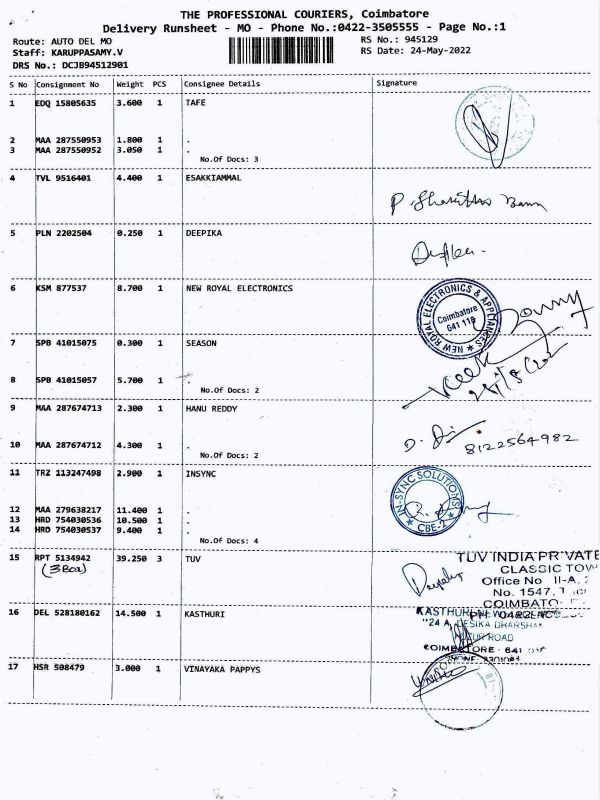 THE PROFESSIONAL COURIERS, Coimbatore
Delivery Runsheet - MO - Phone No.:0422-3505555 - Page No.:1
Route: AUTO DEL MO
RS No.: 945129
Staff: KARUPPASAMY.V
RS Date: 24-May-2022
DRS No.: DCJB94512901
S No Consignment No Weight PCS Consignee Details Signature
1 EDQ 15805635 3.600 1 TAFE
2 MAA 287550953 1.800 1 .
3 MAA 287550952 3.050 1 .
No.Of Docs: 3
4 TVL 9516401 4.400 1 ESAKKIAMMAL
5 PLN 2202504 0.250 1 DEEPIKA
6 KSM 877537 8.700 1 NEW ROYAL ELECTRONICS
NEW ROYAL ELECTRONICS & APPLIANCES
Coimbatore
641 110
7 SPB 41015075 0.300 1 SEASON
8 SPB 41015057 5.700 1 .
No.Of Docs: 2
9 MAA 287674713 2.300 1 HANU REDDY
8122564982
10 MAA 287674712 4.300 1 .
No.Of Docs: 2
11 TRZ 113247498 2.900 1 INSYNC
IN-SYNC SOLUTIONS
CBE-2
12 MAA 279638217 11.400 1 .
13 HRD 754030536 10.500 1 .
14 HRD 754030537 9.400 1 .
No.Of Docs: 4
15 RPT 5134942 39.250 3 TUV
(3 Box)
TUV INDIA PRIVATE
CLASSIC TOW
Office No II-A,
No. 1547,
COIMBATO
16 DEL 528180162 14.500 1 KASTHURI
"24 A, DESIKA DHARSHA
ROAD
COIMBATORE - 641
17 HSR 508479 3.000 1 VINAYAKA PAPPYS